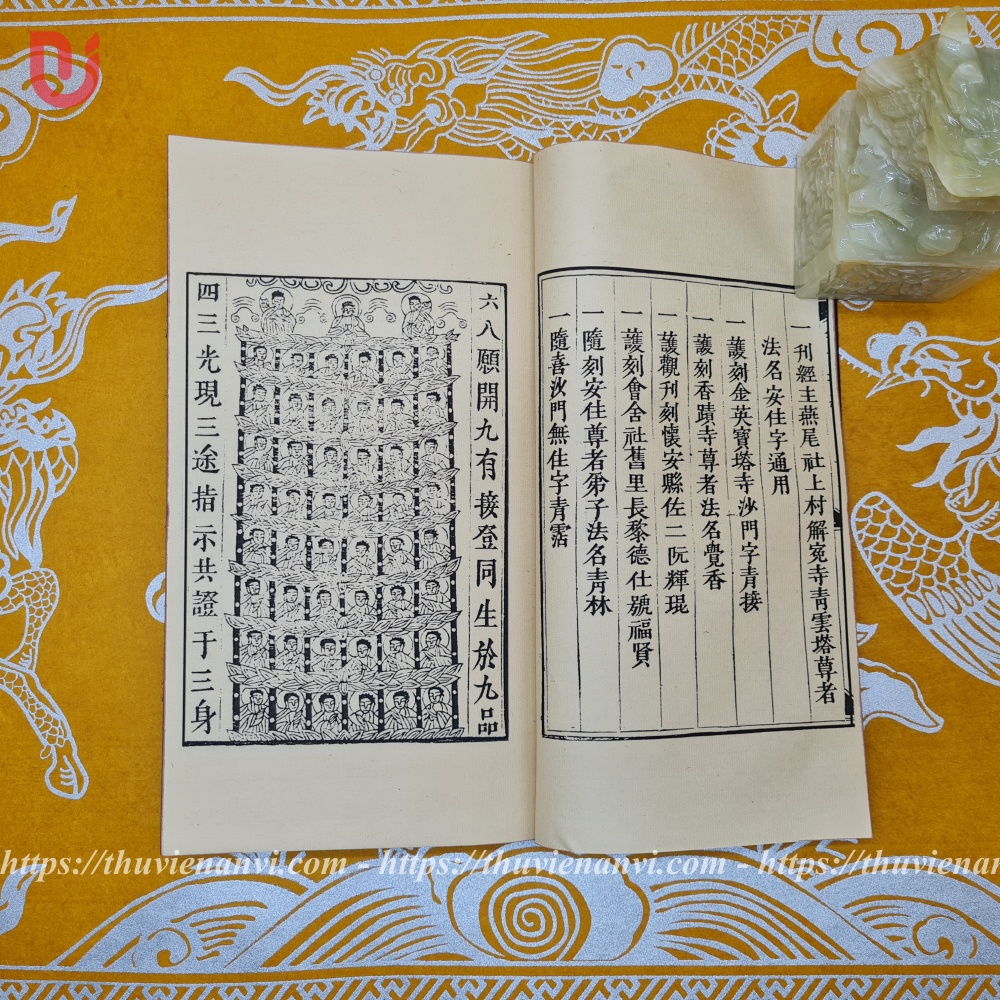 一刊經主燕尾社上村解冤寺青雲塔尊者
法名安住字通用
一護刻金英寶塔寺沙門字青接
一護刻香蹟寺尊者法名覺香
一護觀刊刻懷安縣佐二阮輝琨
一護刻會舍社舊里長黎德仕號福賢
一隨刻安住尊者弟子法名青林
一隨喜沙門無住字青霑
六八願開九有接登同生於九品
四三光現三途指示共證于三身
https://thuvienanvi.com - https://thuvienanvi.com - https://thuvienanvi